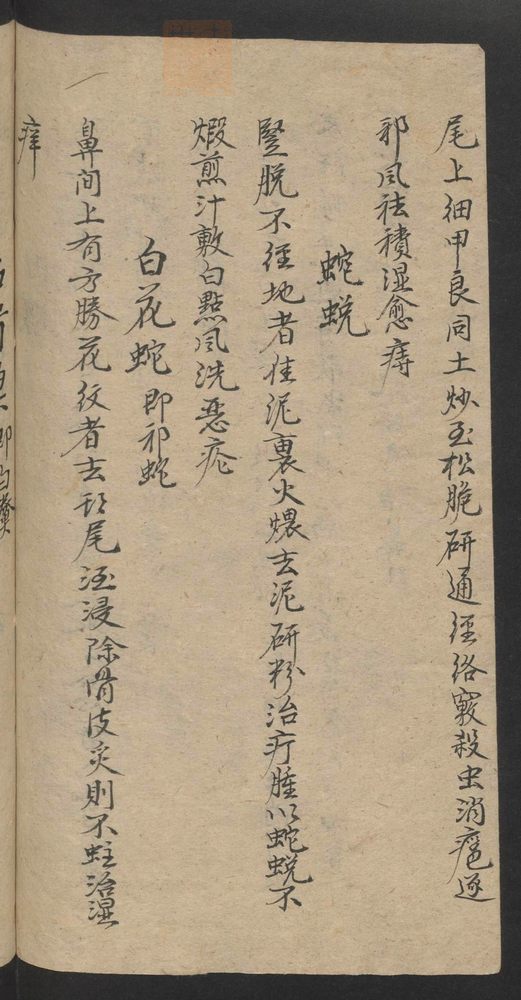 尾上細甲良同土炒至松脆研通经络竅殺虫消瘡逐
邪风祛積湿愈痔
蛇蜕
竪脱不经地者佳泥裹火煨去泥研粉治疔腫以蛇蜕不
煆煎汁敷白點风洗惡疮
白花蛇 即祁蛇
鼻间上有方勝花纹者去頭尾酒浸除骨皮炙則不蛀治湿
痒